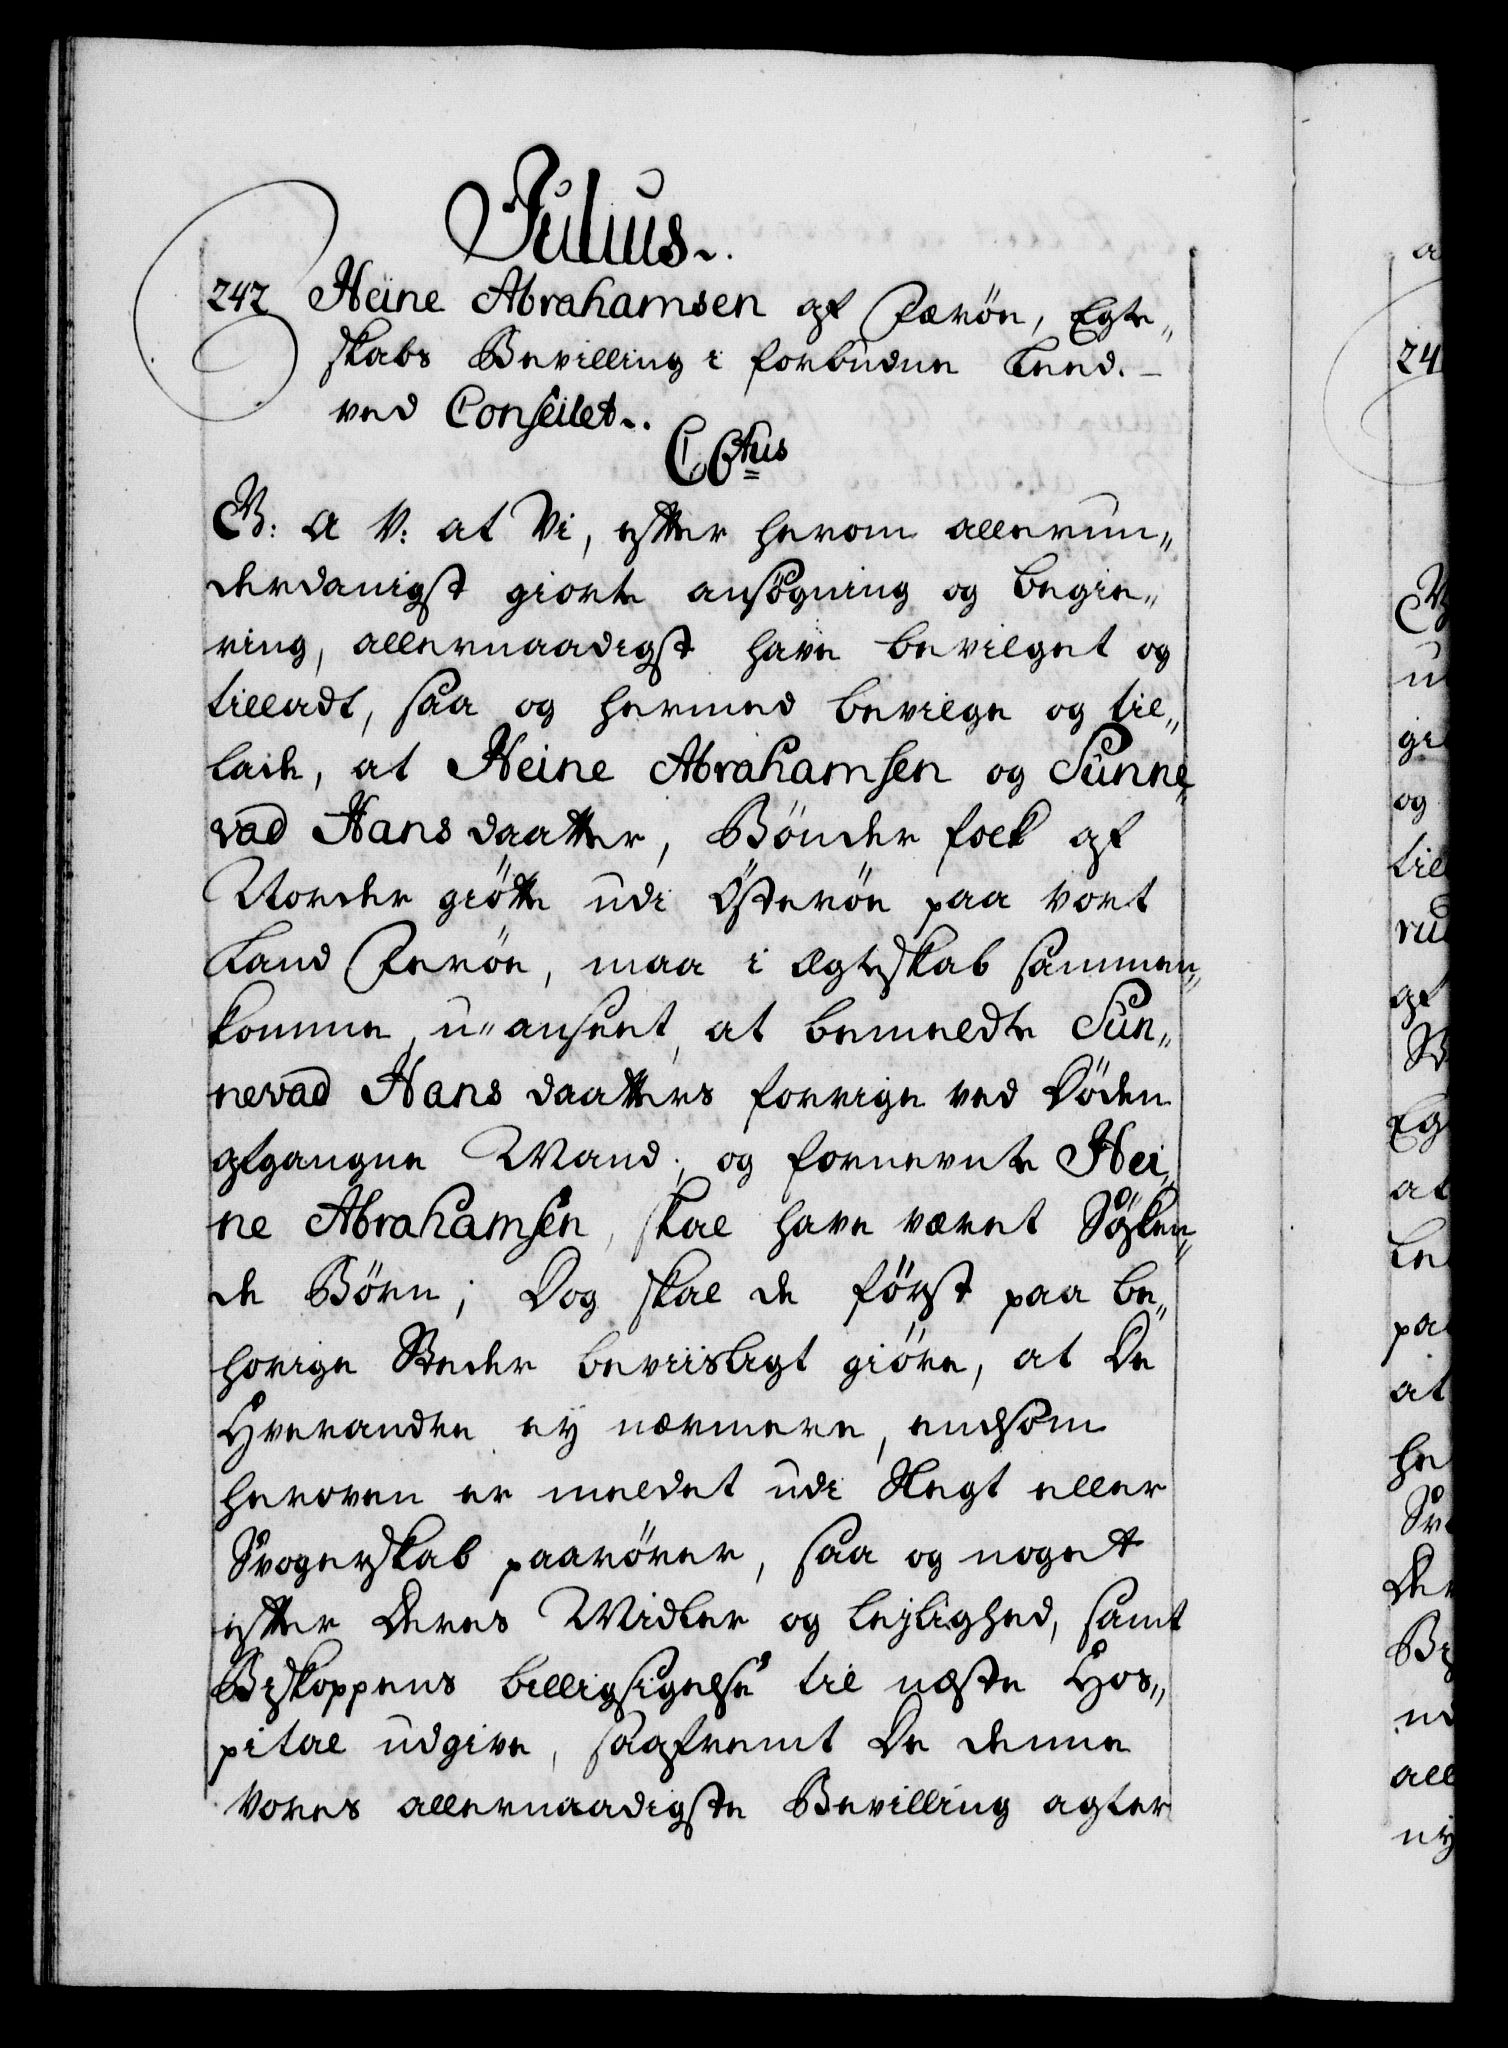 Julius.
242 Heine Abrahamsen af Færöe, Egte„
skabs Bevilling i forbudne Leed. –
ved Conseilet.
C6tus
G: A V: at Vi, efter herom allerun„
derdanigst giorte ansögning og begie„
ring, allernaadigst have bevilget og
tilladt, saa og hermed bevilge og til„
lade, at Heine Abrahamsen og Sunne„
vad Hans daatter, Bönder folk af
Norder giötte udi Österöe paa vort
Land Feröe, maa i Ægteskab sammen„
komme, u„anseet, at bemeldte Sun„
nevad Hans daatters forrige ved Döden
afgangne Mand, og fornevnte Hei„
ne Abrahamsen, skal have været Södsken„
de Börn; Dog skal de först paa be„
horige Steder beviisligt giöre, at De
Hverandre ey nærmere, endsom
heroven er meldet udi Slegt eller
Svogerskab paarörer, saa og noget
efter Deres Midler og lejlighed, samt
Biskoppens billigsigelse til næste Hos„
pital udgive, saafremt De denne
Vores allernaadigste Bevilling agter